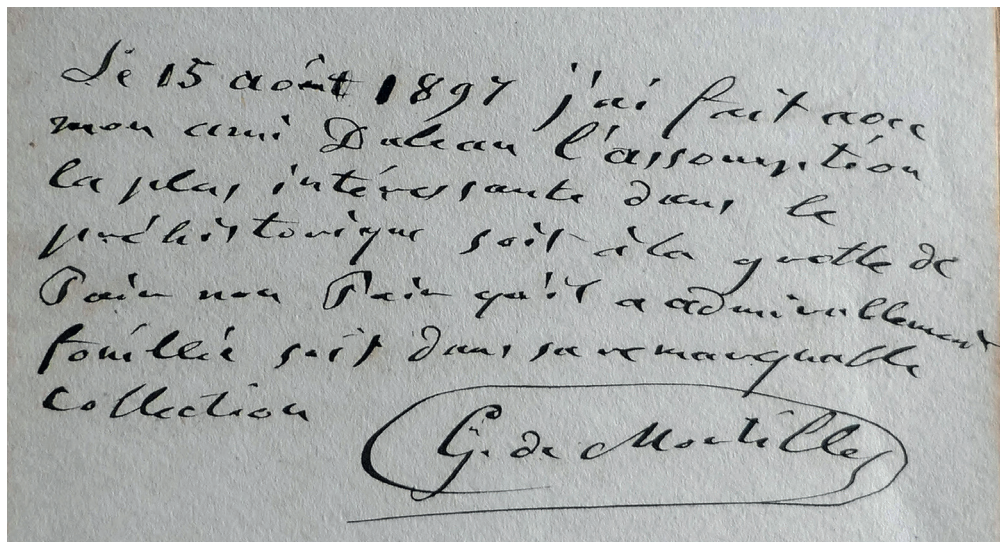 Le 15 août 1897 j'ai fait avec
mon ami Daleau l'assomption
la plus intéressante dans le
préhistorique soit à la grotte de
Pair non Pair qu'il a admirablement
fouillée soit dans sa remarquable
collection
G. de Mortillet